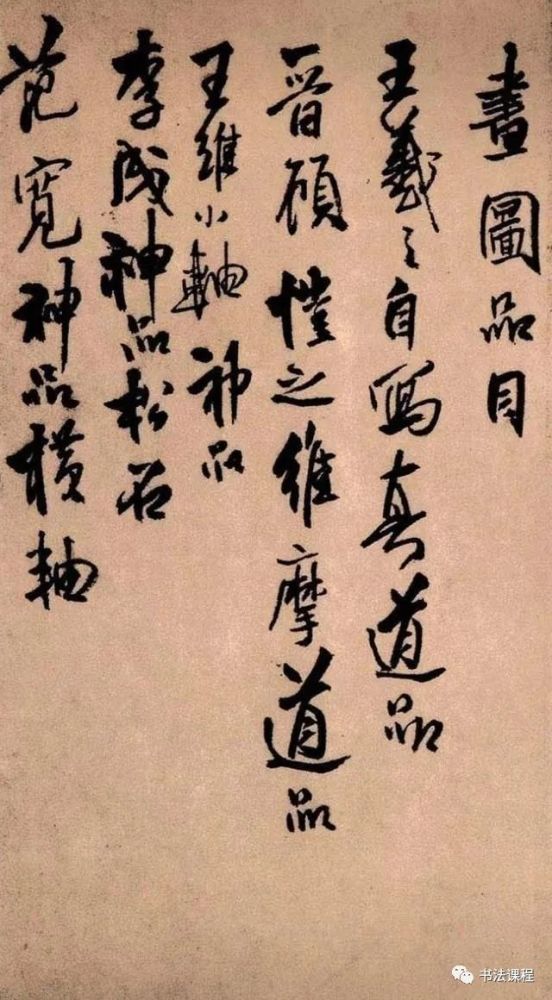 畫圖品目
王羲之自寫真道品
晉顧愷之維摩道品
王維小軸神品
李成神品松石
范寬神品橫軸
书法课程